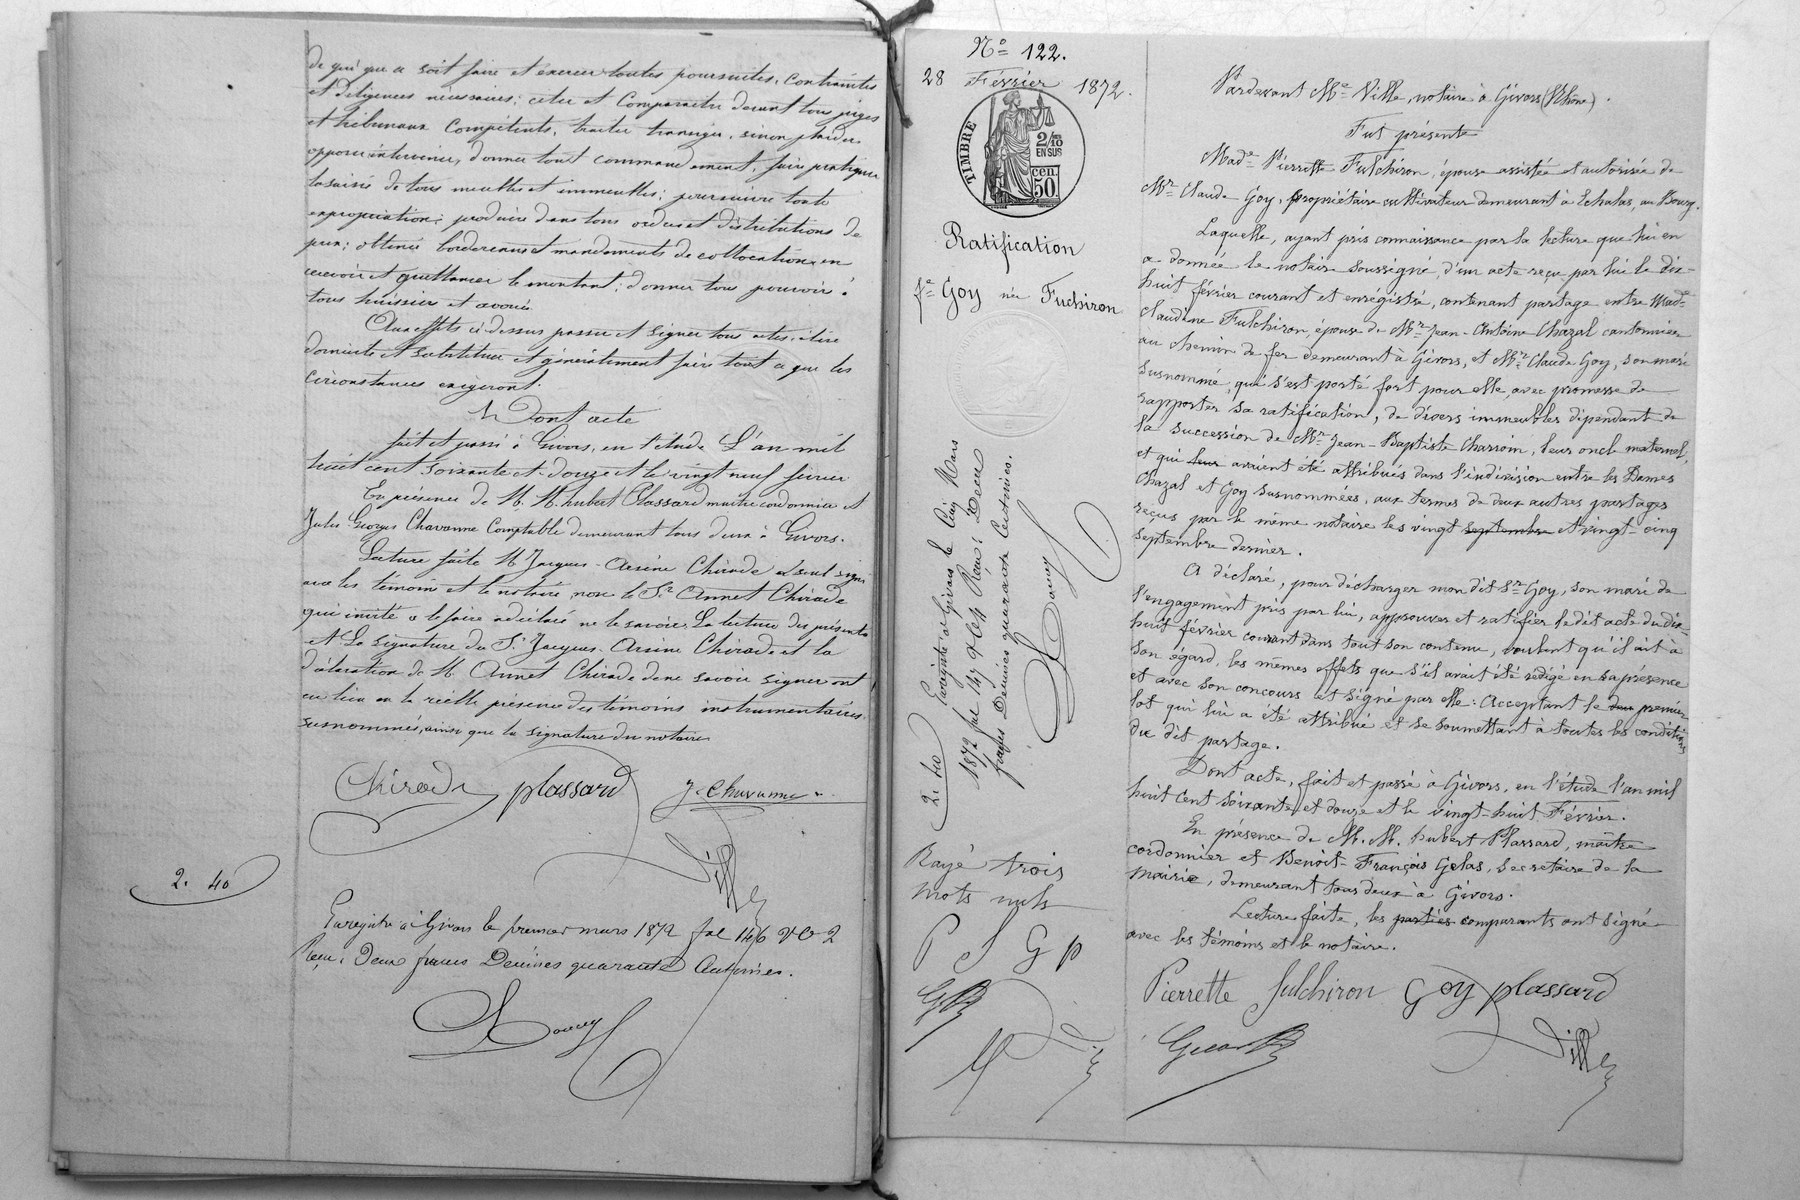 de qui que ce soit faire et exercer toutes poursuites, contraintes
et diligences nécessaires; citer et Comparaître devant tous juges
et tribunaux Compétents, traiter transiger, sinon plaider
opposer intervenir, donner tout commandement, faire pratiquer
la saisie de tous meubles et immeubles; poursuivre toute
expropriation; produire dans tous ordres et distributions de
prix; obtenir bordereaux et mandements de collocation, en
recevoir et quittancer le montant; donner tous pouvoirs à
tous huissier et avoué.
Aux effets ci-dessus passer et signer tous actes, élire
domicile et substituer et généralement faire tout ce que les
circonstances exigeront.
Dont acte
fait et passé à Givors, en l'étude L'an mil
huit cent soixante et douze et le vingt neuf février
En présence de M. M. hubert Plassard maître cordonnier et
Jules Georges Chavanne Comptable demeurant tous deux à Givors.
Lecture faite M Jacques-Arsène Chirade a seul signé
avec les témoins et le notaire, non le Sr Annet Chirade
qui invité à le faire a déclaré ne le savoir. La lecture des présentes
et la signature du Sr Jacques Arsène Chirade et la
déclaration de M Annet Chirade de ne savoir signer ont
eu lieu en la réelle présence des témoins instrumentaires
susnommés, ainsi que la signature du notaire
Chirade plassard J. Chavanne
Ville
2. 40
Enregistré à Givors le premier mars 1872 fol 146 Vo C 2
Reçu: Deux francs Décimes quarante Centimes.
No 122.
28 Février 1872.
TIMBRE
2/10
EN SUS
cen.
50
Ratification
fe Goy née Fuchiron
2. 40
Enregistré à Givors le Cinq Mars
1872 fol 147 Vo C4 Reçu: Deux
francs Décimes quarante Centimes.
Rayé trois
mots nuls
P f G p
Pardevant Me Ville, notaire à Givors (Rhône).
Fut présente
Made Pierrette Fulchiron, épouse assistée et autorisée de
Mr Claude Goy, propriétaire cultivateur demeurant à Echalas, au Bourg.
Laquelle, ayant pris connaissance par la lecture que lui en
a donnée le notaire soussigné, d'un acte reçu par lui le dix-
huit février courant et enrégistré, contenant partage entre Made
Claudine Fulchiron, épouse de Mr Jean-Antoine Chazal cantonnier
au chemin de fer demeurant à Givors, et Mr Claude Goy, son mari
susnommé, qui s'est porté fort pour elle, avec promesse de
rapporter sa ratification, de divers immeubles dépendant de
la succession de Mr Jean-Baptiste Charroin, leur oncle maternel,
et qui leur avaient été attribués dans l'indivision entre les Dames
Chazal et Goy susnommées, aux termes de deux autres partages
reçus par le même notaire les vingt septembre et vingt-cinq
septembre dernier.
A déclaré, pour décharger mon dit Sr Goy, son mari de
l'engagement pris par lui, approuver et ratifier le dit acte du dix-
huit février courant dans tout son contenu, voulant qu'il ait à
son égard, les mêmes effets que s'il avait été rédigé en sa présence
et avec son concours et signé par elle: Acceptant le premier
lot qui lui a été attribué et se soumettant à toutes les conditions
du dit partage.
Dont acte, fait et passé à Givors, en l'étude l'an mil
huit cent soixante et douze et le vingt-huit Février.
En présence de M. M. hubert Plassard, maître
cordonnier et Benoit-François Gelas, secrétaire de la
mairie, demeurant tous deux à Givors.
Lecture faite, les parties comparants ont signé
avec les témoins et le notaire.
Pierrette fulchiron Goy plassard
Ville